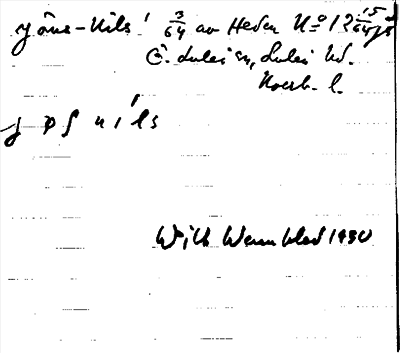 Jöns-Nils! 3/64 av Heden No 12 15/64
Ö. Luleå sn, Luleå
Norrb. l.
j ö s n i l s
Wennblad 1930